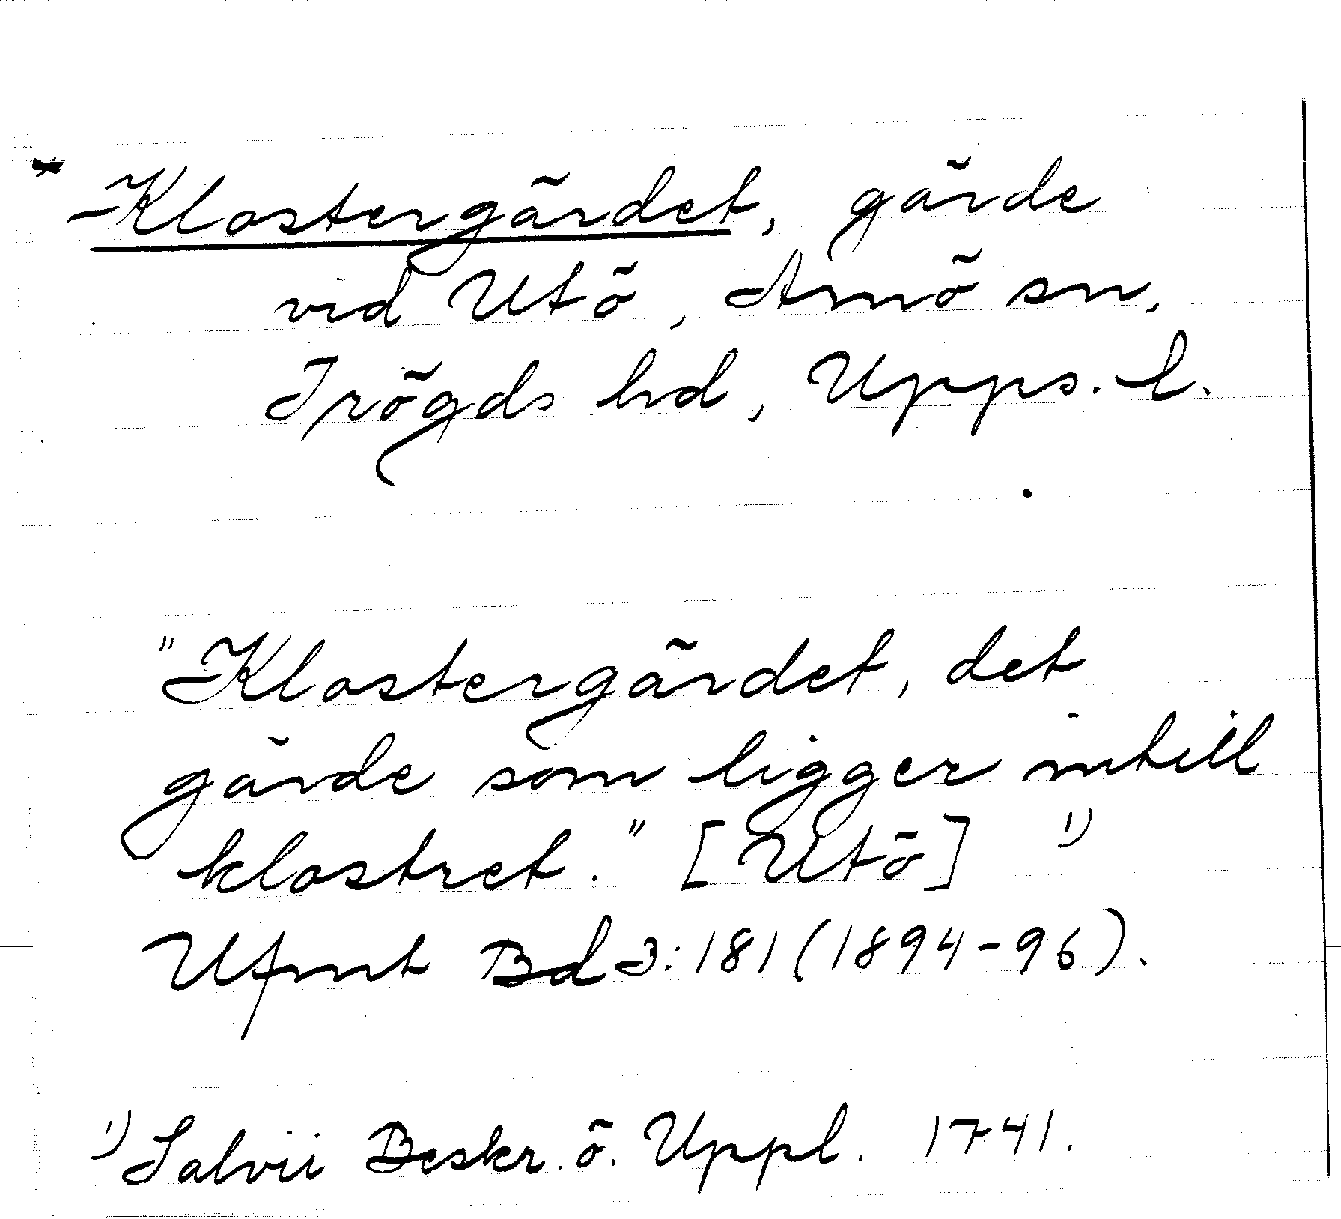 *Klostergärdet, gärde
vid Utö, Arnö sn,
Trögds hd, Upps. l.
"Klostergärdet, det
gärde som ligger intill
klostret." [Utö] 1)
Ufmt Bd 3:181 (1894-96).
1) Salvii Beskr. ö. Uppl. 1741.